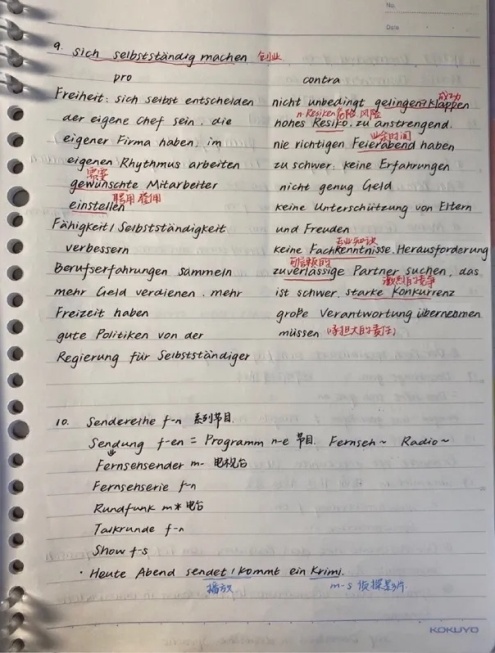 No.
Date
9. sich selbstständig machen 创业
pro
Freiheit: sich selbst entscheiden
der eigene Chef sein. die
eigener Firma haben. im
eigenen Rhythmus arbeiten
需要
gewünschte Mitarbeiter
einstellen 聘用 雇用
Fähigkeit / Selbstständigkeit
verbessern
Berufserfahrungen sammeln
mehr Geld verdienen. mehr
Freizeit haben
gute Politiken von der
Regierung für Selbstständiger
contra
成功
nicht unbedingt gelingen/klappen
n. Resiken 危险 风险
hohes Resiko. zu anstrengend.
业余时间
nie richtigen Feierabend haben
zu schwer. keine Erfahrungen
nicht genug Geld
keine Unterschützung von Eltern
und Freuden
专业知识
keine Fachkenntnisse. Herausforderung
可信赖的
zuverlässige Partner suchen, das
激烈的竞争
ist schwer. starke Konkurrenz
große Verantwortung übernehmen
müssen (承担大的责任)
10. Sendereihe f-n 系列节目
Sendung f-en = Programm n-e 节目. Fernseh~ Radio~
Fernsehsender m- 电视台
Fernsehserie f-n
Rundfunk m* 电台
Talkrunde f-n
Show f-s
· Heute Abend sendet / kommt ein Krimi.
播放 m-s 侦探影片
KOKUYO